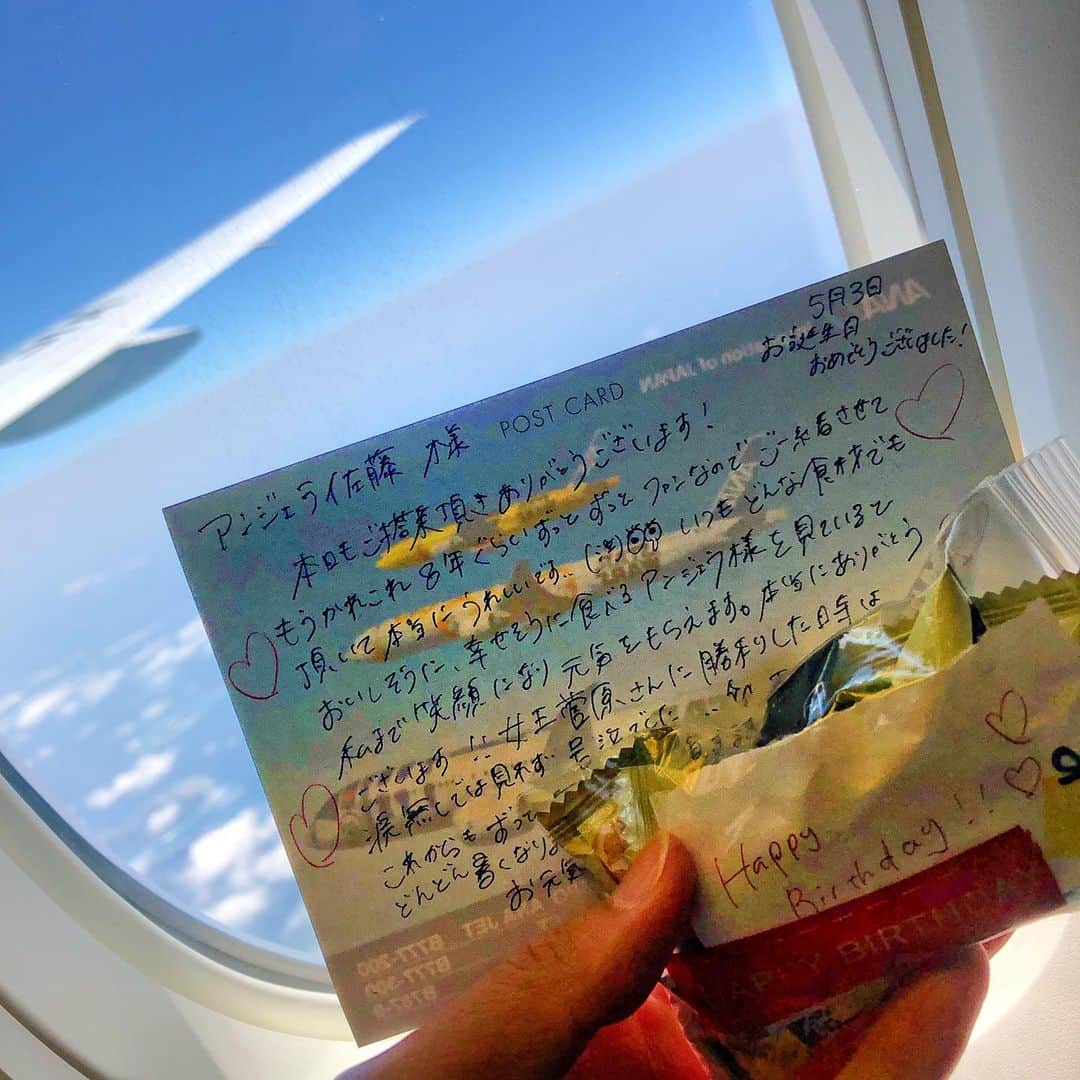 5月3日
お誕生日
おめでとうございました!
POST CARD
アンジェライ佐藤 様
本日もご搭乗頂きありがとうございます!
もうかれこれ8年ぐらいずっとずっとファンなのでご一緒させて
頂いて本当にうれしいです‥(涙) いつもどんな食材でも
おいしそうに、幸せそうに食べるアンジェラ様を見ていると
私まで笑顔になり元気をもらえます。本当にありがとう
ございます!!女王菅原さんに勝利した日等は
涙無しでは見れず号泣でした‥
これからもずって
どんどん暑くなりま
お元気
Happy
Birthday!!
HAPPY BIRTHDAY
ANA
of JAPAN
JET
B777-200
B777-300